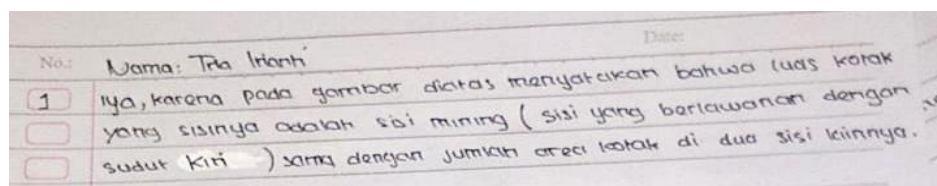 No.: Date:
Nama: Tria Irianti
1 Iya, karena pada gambar diatas menyatakan bahwa luas kotak
yang sisinya adalah sisi mining ( sisi yang berlawanan dengan
sudut Kiri ) sama dengan jumlah area kotak di dua sisi lainnya.